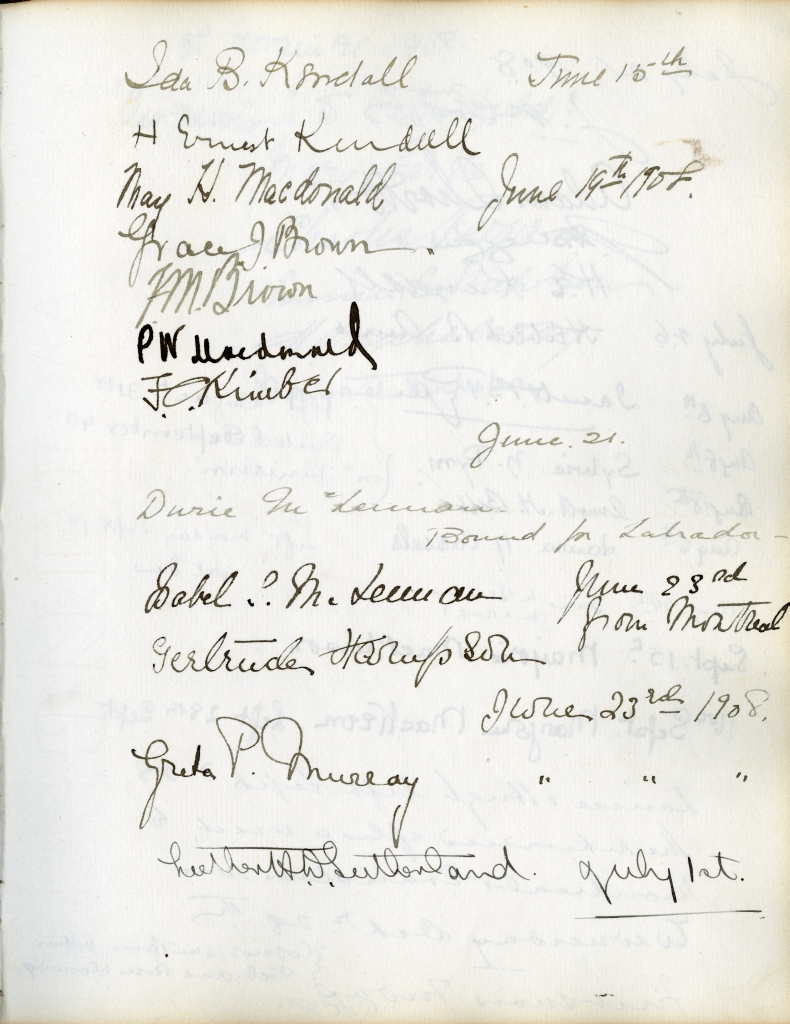 Ida B. Kendall June 15th
H Ernest Kendall
May H. Macdonald June 19th 1908.
Grace J Brown.
F.M. Brown
P W Macdonald
F. C. Kimber
June. 21.
Durie McLennan.
Bound for Labrador -
Isabel S. McLennan June 23rd
from Montreal
Gertrude Thompson
June 23rd 1908.
Greta P. Murray " " "
Sutherland. July 1st.